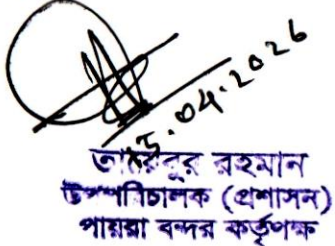 15.04.2026
রহমান
উপপরিচালক (প্রশাসন)
পায়রা বন্দর কর্তৃপক্ষ